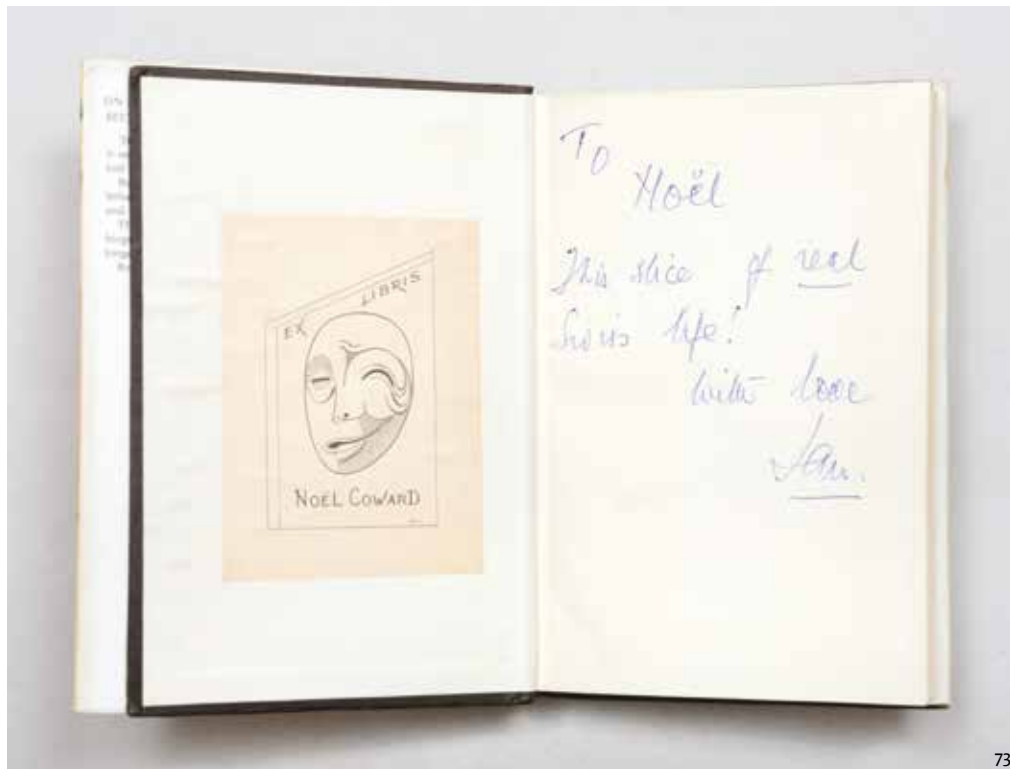 ON
EX LIBRIS
NOËL COWARD
To
Noël
This slice of real
Swiss life!
with love
Ian.
73